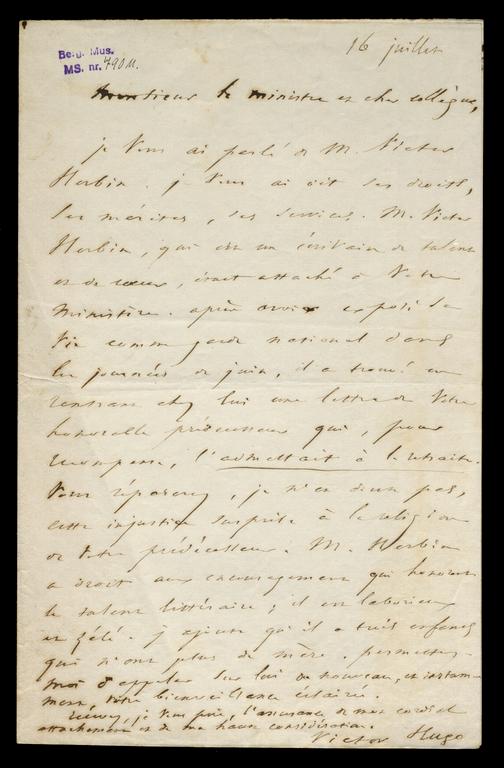 Berg. Mus.
MS. nr. 490 M.
16 juillet
Monsieur le ministre et cher collègue,
je vous ai parlé de M. Victor
Herbin. je vous ai dit ses droits,
ses mérites, ses services. M. Victor
Herbin, qui est un écrivain de talent
et de cœur, était attaché à votre
ministère. après avoir exposé sa
vie comme garde national dans
les journées de juin, il a trouvé en
rentrant chez lui une lettre de votre
honorable prédécesseur qui, pour
récompense, l'admettait à la retraite.
Vous réparerez, je n'en doute pas,
cette injustice surprise à la religion
de votre prédécesseur. M. Herbin
a droit aux encouragements qui honorent
le talent littéraire ; il est laborieux
et zélé. j'ajoute qu'il a trois enfants
qui n'ont plus de mère. permettez-
moi d'appeler sur lui de nouveau, et instam-
ment, votre bienveillance éclairée.
recevez, je vous prie, l'assurance de mon cordial
attachement et de ma haute considération.
Victor Hugo